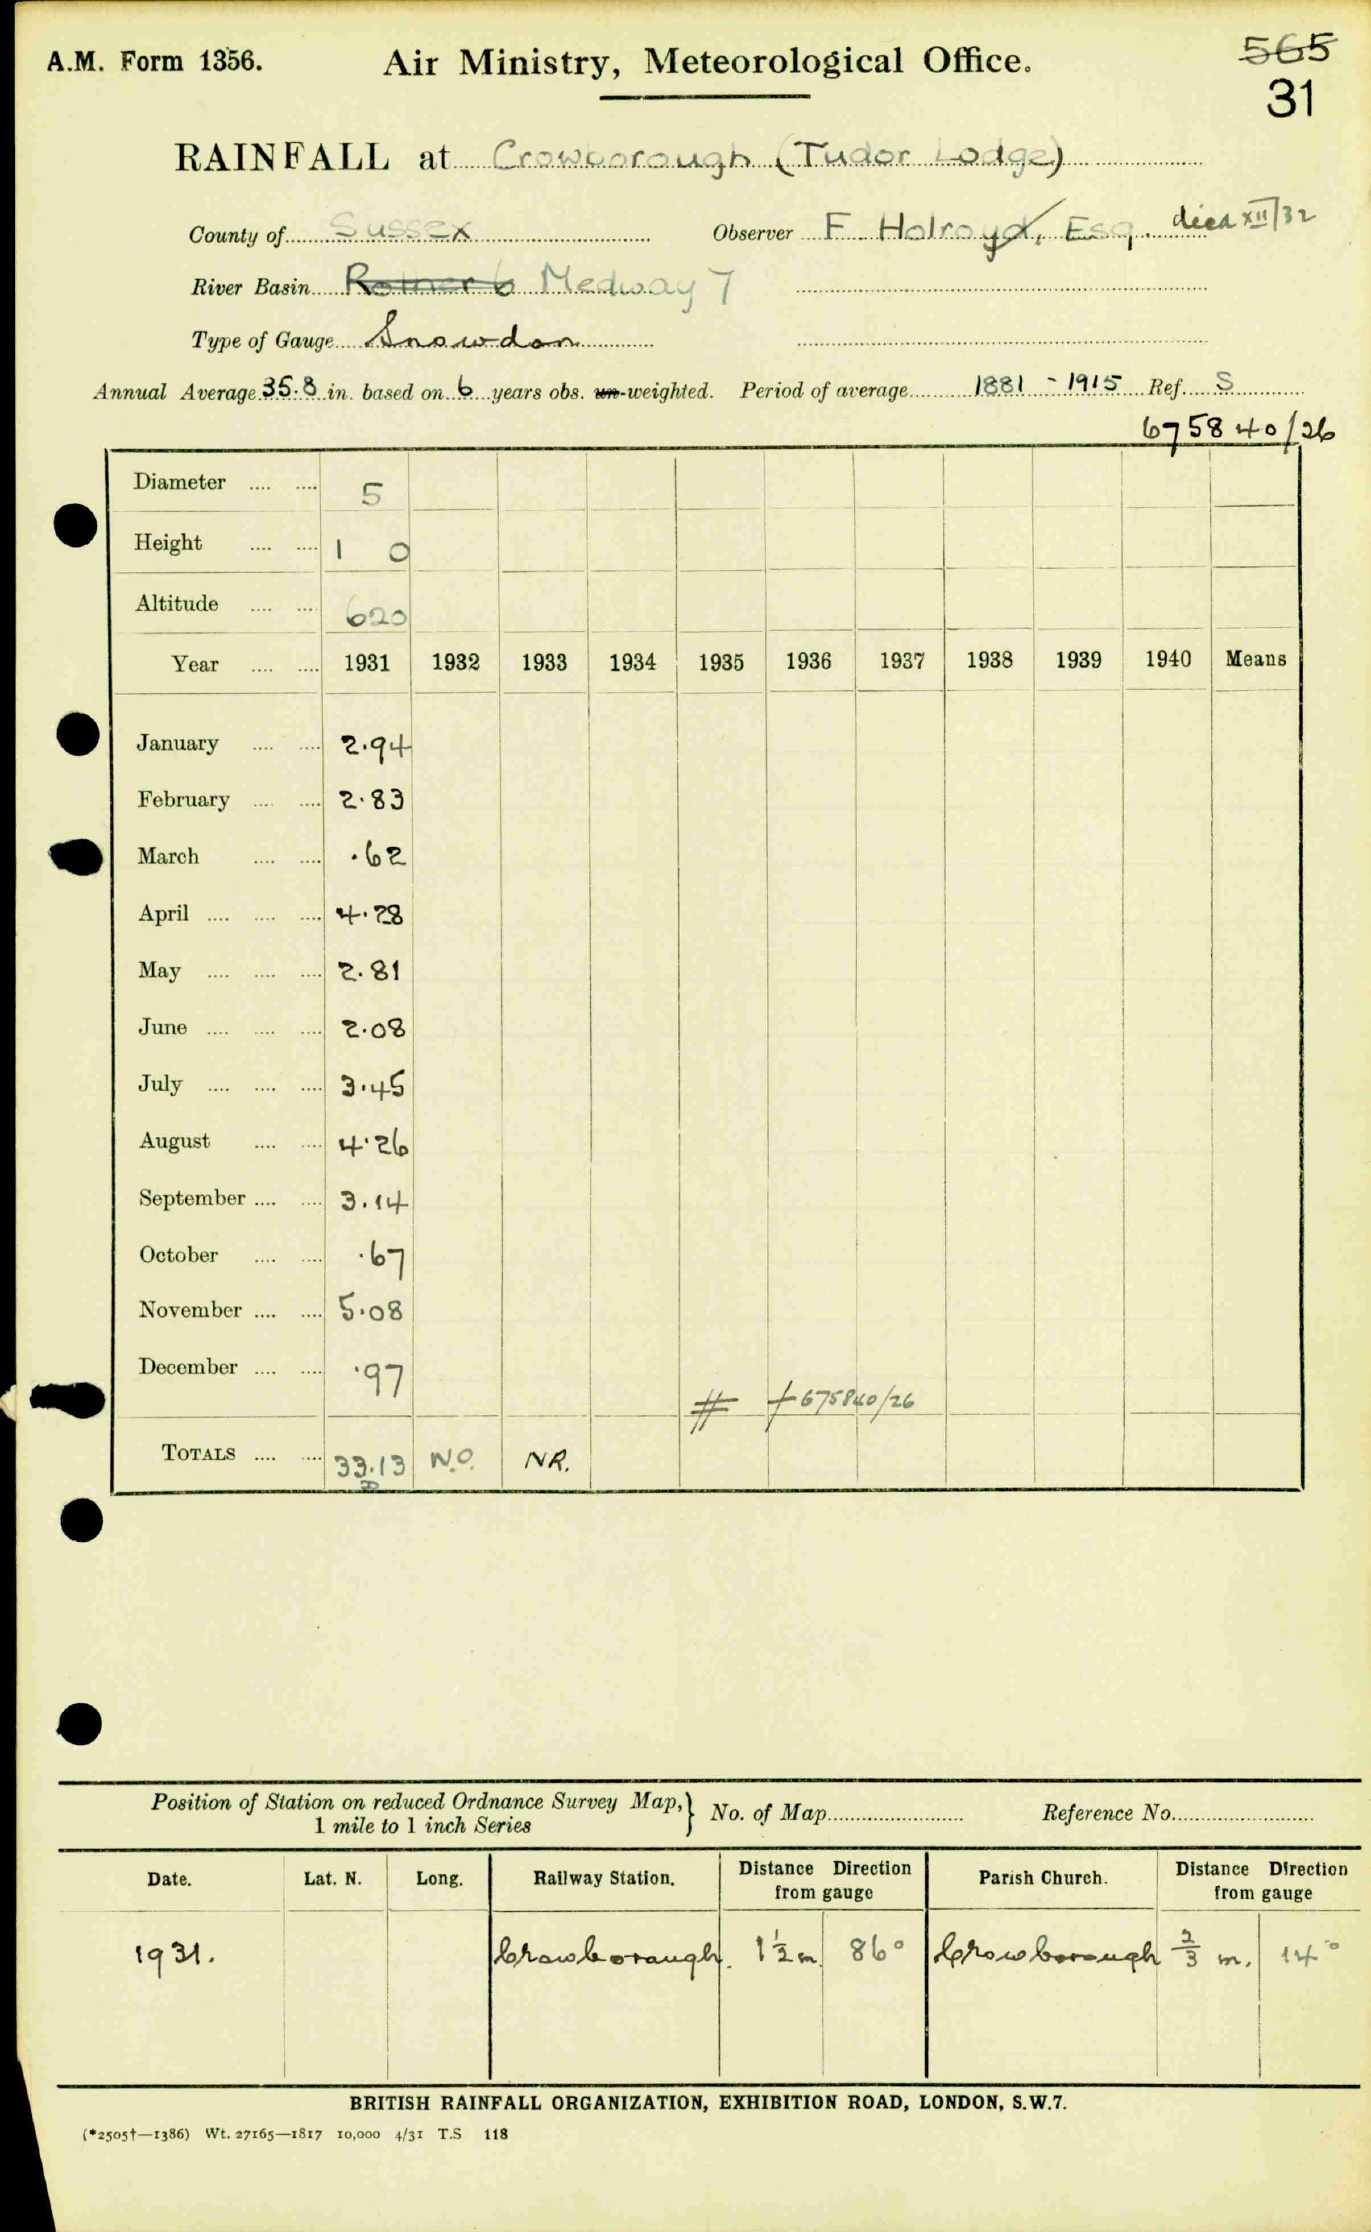 A.M. Form 1356. Air Ministry, Meteorological Office. 565
31
RAINFALL at Crowborough (Tudor Lodge)
County of Sussex Observer F. Holroyd, Esq. died XII/32
River Basin Rother 6 Medway 7
Type of Gauge Snowdon
Annual Average 35.8 in. based on 6 years obs. un-weighted. Period of average 1881 - 1915 Ref. S
675840/26
Diameter .... .... 5
Height .... .... 1 0
Altitude .... .... 620
Year .... .... 1931 1932 1933 1934 1935 1936 1937 1938 1939 1940 Means
January .... .... 2.94
February .... .... 2.83
March .... .... .62
April .... .... .... 4.28
May .... .... .... 2.81
June .... .... .... 2.08
July .... .... .... 3.45
August .... .... 4.26
September .... .... 3.14
October .... .... .67
November .... .... 5.08
December .... .... .97
# + 675840/26
TOTALS .... .... 33.13 N.O. NR.
Position of Station on reduced Ordnance Survey Map, } No. of Map Reference No.
1 mile to 1 inch Series
Date. Lat. N. Long. Railway Station. Distance Direction from gauge Parish Church. Distance Direction from gauge
1931. Crowborough. 1½ m. 86° Crowborough ⅔ m. 14°
BRITISH RAINFALL ORGANIZATION, EXHIBITION ROAD, LONDON, S.W.7.
(*2505†—1386) Wt. 27165—1817 10,000 4/31 T.S 118